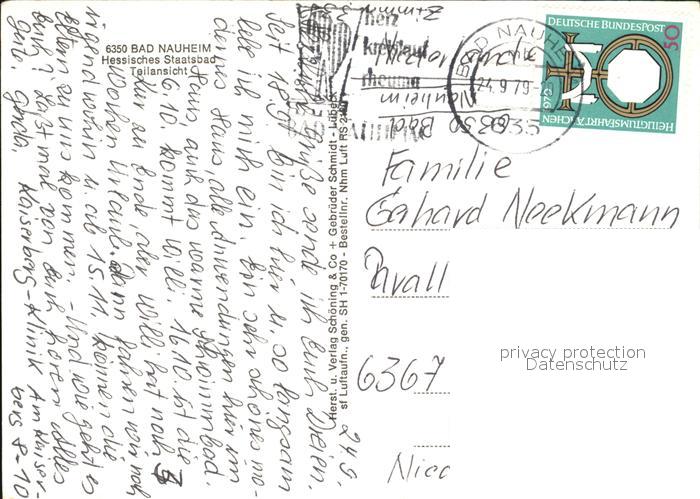 6350 BAD NAUHEIM
Hessisches Staatsbad
Teilansicht
herz
kreislauf
rheuma
BAD NAUHEIM
BAD NAUHEIM
24.9.79
DEUTSCHE BUNDESPOST
50
1979
HEILIGTUMSFAHRT AACHEN
6350 Bad
Nauheim
Zimmer
Herst. u. Verlag Schöning & Co + Gebrüder Schmidt - Lübeck
sf Luftaufn., gen. SH 1-70170 - Bestellnr. Nhm Luft RS
24.9.
Grüße sende ich Euch Dreien.
Seit 18.9. bin ich hier u. so langsam
lebe ich mich ein. Ein sehr schönes mo-
dernes Haus, alle Anwendungen hier im
Haus auch das warme Schwimmbad.
6.10. kommt Willi. 16.10. ist die
Kur zu Ende, aber Willi hat noch 3
Wochen Urlaub. Dann fahren wir noch
irgendwohin u. ab 15.11. können die
Eltern zu uns kommen. Und wie geht es
Euch? Lasst mal von Euch hören. Alles
Gute Gerda, Kaiserberg-Klinik Am Kaiser-
berg 8-10
Familie
Gerhard Neekmann
6367
privacy protection
Datenschutz